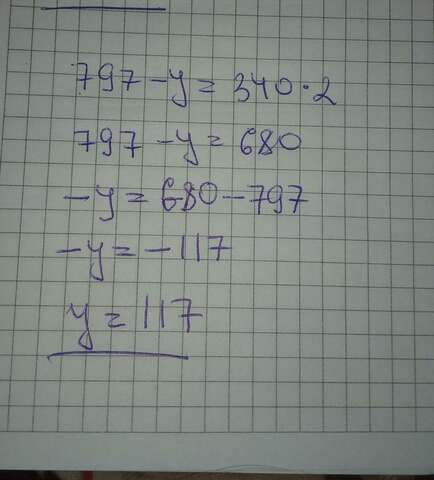 797 - y = 340 · 2
797 - y = 680
- y = 680 - 797
- y = - 117
y = 117